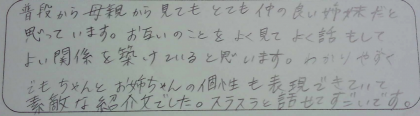 普段から母親から見てもとても仲の良い姉妹だと
思っています。お互いのことをよく見てよく話もして
よい関係を築けていると思います。わかりやすく
ももちゃんとお姉ちゃんの個性も表現できていて
素敵な紹介文でした。スラスラと話せてすごいです。